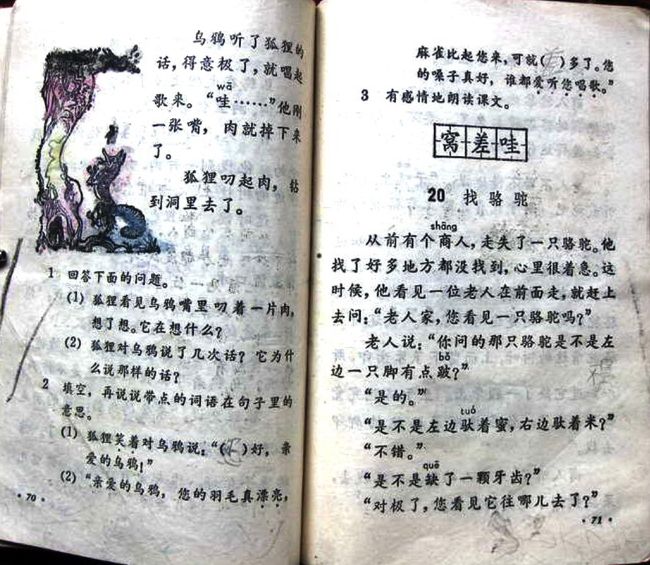 乌鸦听了狐狸的
话，得意极了，就唱起
wā
歌来。“哇……”他刚
一张嘴，肉就掉下来
了。
狐狸叼起肉，钻
到洞里去了。
1 回答下面的问题。
(1) 狐狸看见乌鸦嘴里叼着一片肉，
想了想。它在想什么？
(2) 狐狸对乌鸦说了几次话？它为什
么说那样的话？
2 填空，再说说带点的词语在句子里的
意思。
(1) 狐狸笑着对乌鸦说：“( )好，亲
爱的乌鸦！”
(2) “亲爱的乌鸦，您的羽毛真漂亮，
·70·
麻雀比起您来，可就( )多了。您
的嗓子真好，谁都爱听您唱歌。”
3 有感情地朗读课文。
窝差哇
20 找骆驼
shāng
从前有个商人，走失了一只骆驼。他
找了好多地方都没找到，心里很着急。这
时候，他看见一位老人在前面走，就赶上
去问：“老人家，您看见一只骆驼吗？”
老人说：“你问的那只骆驼是不是左
bǒ
边一只脚有点跛？”
“是的。”
tuó
“是不是左边驮着蜜，右边驮着米？”
“不错。”
quē
“是不是缺了一颗牙齿？”
“对极了，您看见它往哪儿去了？”
·71·